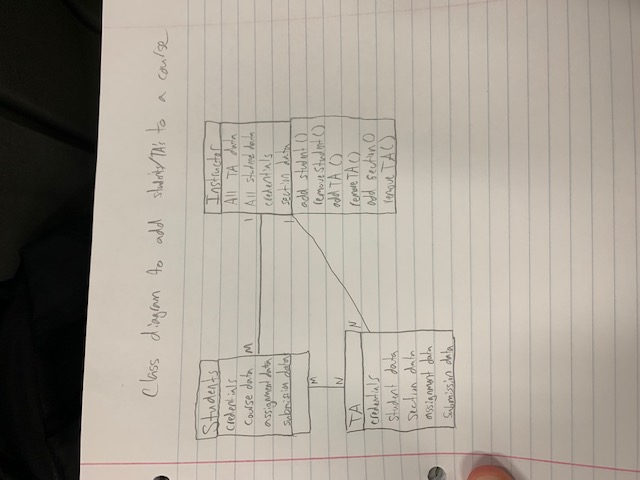 Class diagram to add students/TA's to a course
Students
credentials
course data
assignment data
submission data
M
1
Instructor
All TA data
All student data
credentials
section data
add student()
remove student()
add TA ()
remove TA()
add section()
remove TA()
1
M
N
N
TA
credentials
student data
section data
assignment data
submission data